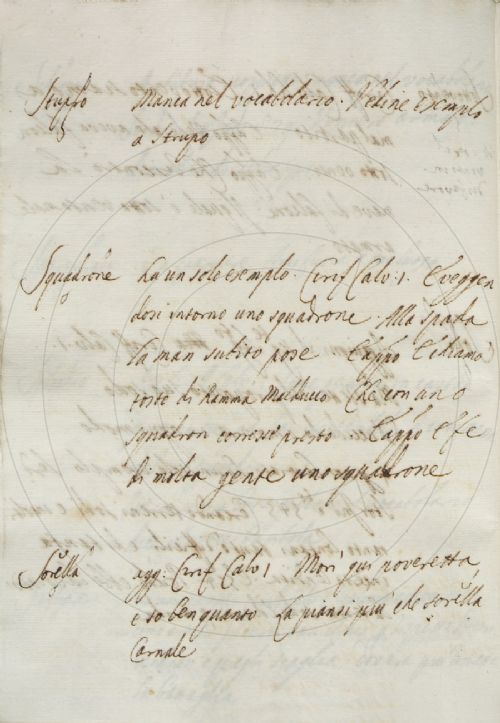 Stupro manca nel vocabolario. Vedine esemplo
a strupo
Squadrone ha un solo esemplo. Cirif Calv: 1. E veggen
dosi intorno uno squadrone. Alla spada
la man subito pose E appo E chiamò
tosto di Mamma Malducco Che con un o
squadron venisse presto. E appo E fe
di molta gente uno squadrone
Sorella agg: Cirif Calv 1 Morì qui poveretta
e so ben quanto La piansi più che sorella
Carnale